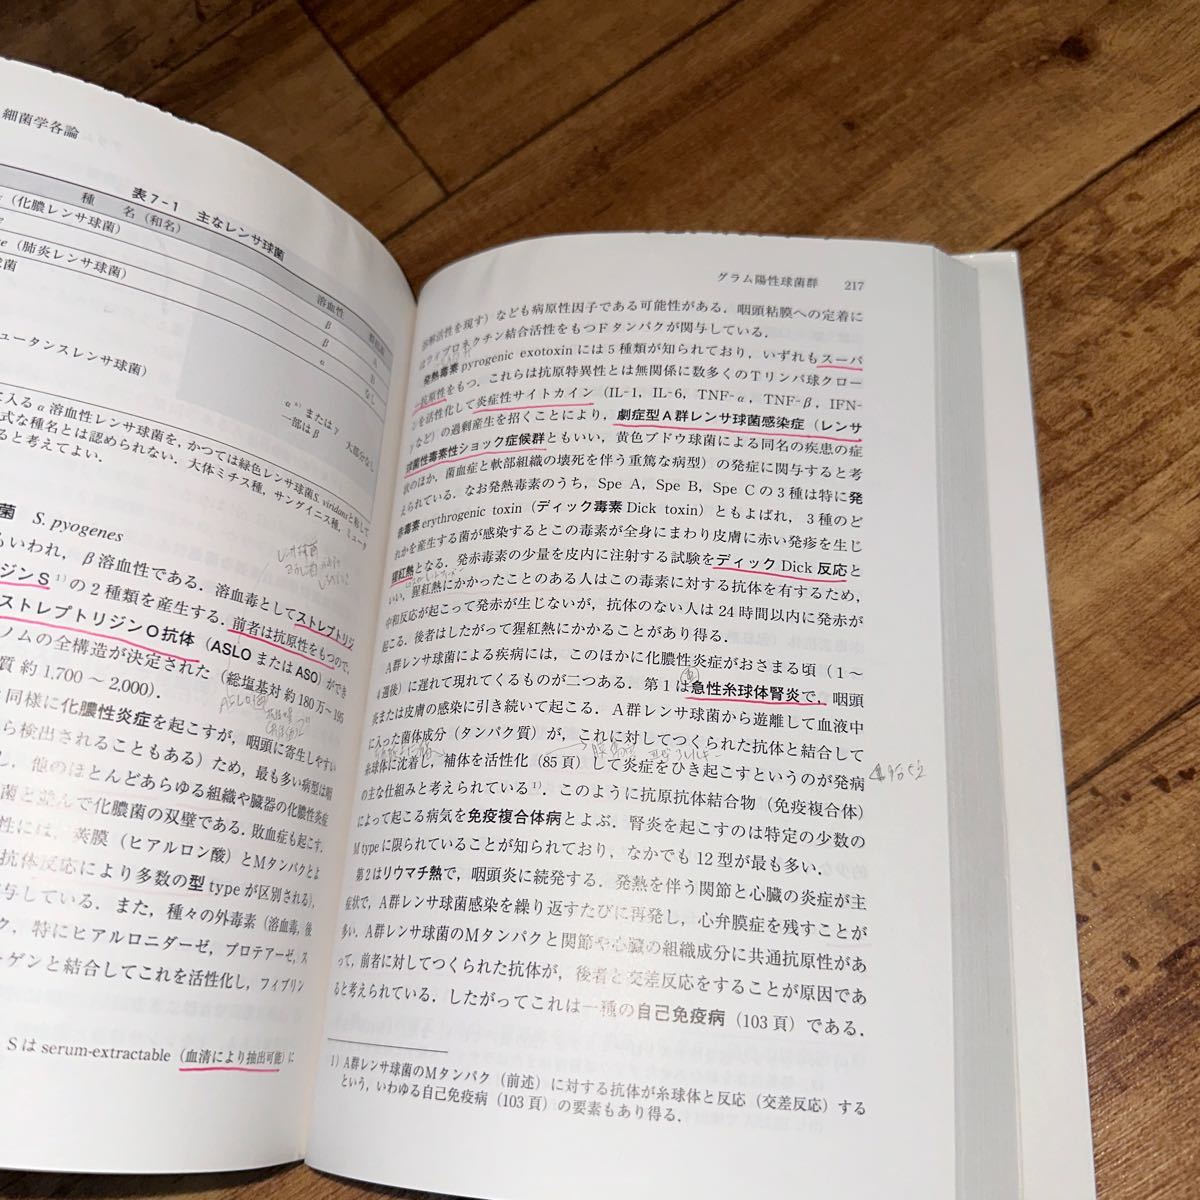 細菌学各論
表7-1 主なレンサ球菌
種 名(和名)
溶血性
(化膿レンサ球菌)
β
A
β
B
(肺炎レンサ球菌)
α
なし
球菌
ュータンスレンサ球菌)
αまたはγ
一部はβ
大部分なし
に入るα溶血性レンサ球菌を,かつては緑色レンサ球菌S. viridansと称して
式な種名とは認められない.大体ミチス種,サンギイニス種,ミュータ
ると考えてよい.
菌 S. pyogenes
もいわれ,β溶血性である.溶血毒としてストレプトリジ
ジンS¹⁾の2種類を産生する.前者は抗原性をもつので,
ストレプトリジンO抗体(ASLOまたはASO)ができ
ノムの全構造が決定された(総塩基対 約180万〜195
質 約1,700〜2,000).
と同様に化膿性炎症を起こすが,咽頭に寄生しやすい
ら検出されることもある)ため,最も多い病型は咽
し,他のほとんどあらゆる組織や臓器の化膿性炎症
菌と並んで化膿菌の双璧である.敗血症も起こす.
性には,莢膜(ヒアルロン酸)とMタンパクとよ
抗体反応により多数の型typeが区別される),
与している.また,種々の外毒素(溶血毒,後
ク,特にヒアルロニダーゼ,プロテアーゼ,ス
ーゲンと結合してこれを活性化し,フィブリン
Sはserum-extractable(血清により抽出可能)に
グラム陽性球菌群 217
溶解活性を現す)なども病原性因子である可能性がある.咽頭粘膜への定着に
はフィブロネクチン結合活性をもつFタンパクが関与している.
発熱毒素pyrogenic exotoxinには5種類が知られており,いずれもスーパ
ー抗原性をもつ.これらは抗原特異性とは無関係に数多くのTリンパ球クロー
ンを活性化して炎症性サイトカイン(IL-1, IL-6, TNF-α, TNF-β, IFN-
γなど)の過剰産生を招くことにより,劇症型A群レンサ球菌感染症(レンサ
球菌性毒素性ショック症候群ともいい,黄色ブドウ球菌による同名の疾患の症
状のほか,菌血症と軟部組織の壊死を伴う重篤な病型)の発症に関与すると考
えられている.なお発熱毒素のうち,Spe A, Spe B, Spe Cの3種は特に発
赤毒素erythrogenic toxin(ディック毒素Dick toxin)ともよばれ,3種のど
れかを産生する菌が感染するとこの毒素が全身にまわり皮膚に赤い発疹を生じ
猩紅熱となる.発赤毒素の少量を皮内に注射する試験をディックDick反応と
いい,猩紅熱にかかったことのある人はこの毒素に対する抗体を有するため,
中和反応が起こって発赤が生じないが,抗体のない人は24時間以内に発赤が
起こる.後者はしたがって猩紅熱にかかることがあり得る.
A群レンサ球菌による疾病には,このほかに化膿性炎症がおさまる頃(1〜
4週後)に遅れて現れてくるものが二つある.第1は急性糸球体腎炎で,咽頭
炎または皮膚の感染に引き続いて起こる.A群レンサ球菌から遊離して血液中
に入った菌体成分(タンパク質)が,これに対してつくられた抗体と結合して
糸球体に沈着し,補体を活性化(85頁)して炎症をひき起こすというのが発病
の主な仕組みと考えられている¹⁾.このように抗原抗体結合物(免疫複合体)
によって起こる病気を免疫複合体病とよぶ.腎炎を起こすのは特定の少数の
M typeに限られていることが知られており,なかでも12型が最も多い.
第2はリウマチ熱で,咽頭炎に続発する.発熱を伴う関節と心臓の炎症が主
症状で,A群レンサ球菌感染を繰り返すたびに再発し,心弁膜症を残すことが
多い.A群レンサ球菌のMタンパクと関節や心臓の組織成分に共通抗原性があ
って,前者に対してつくられた抗体が,後者と交差反応をすることが原因であ
ると考えられている.したがってこれは一種の自己免疫病(103頁)である.
1)A群レンサ球菌のMタンパク(前述)に対する抗体が糸球体と反応(交差反応)する
という,いわゆる自己免疫病(103頁)の要素もあり得る.